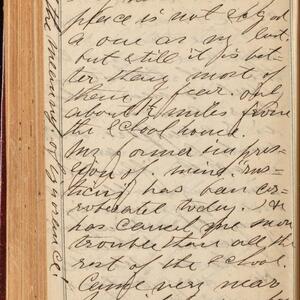 place is not so good
a one as my last.
but still it is bet-
ter than most of
them I fear. only
about 1½ miles from
the School house.
My former impres-
sion of
has been cor-
roborated today. &
has caused me more
trouble than all the
rest of the School.
Came very near
the meaning of Ignorance!